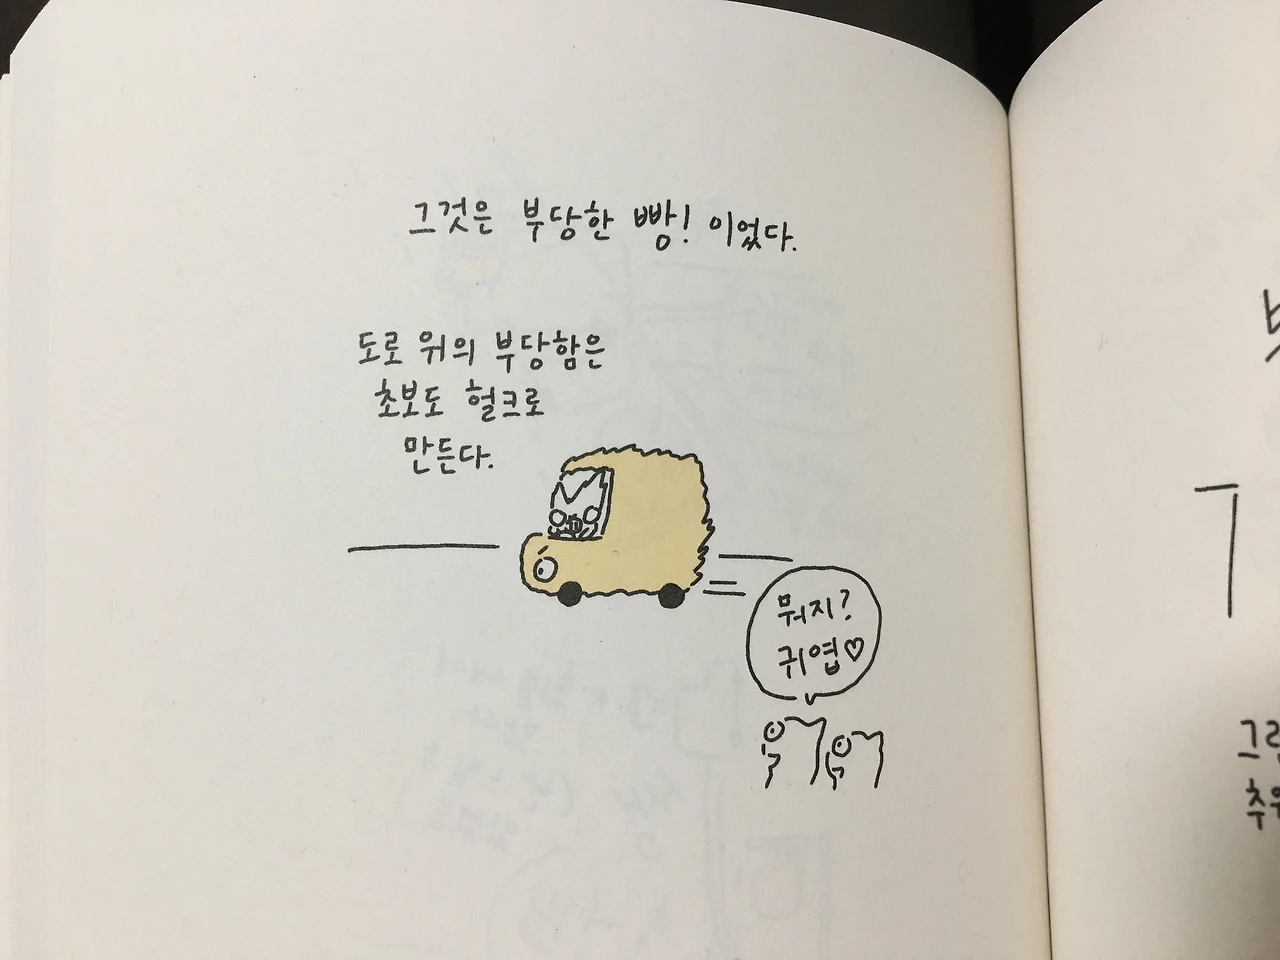 그것은 부당한 빵! 이었다.
도로 위의 부당함은
초보도 헐크로
만든다.
뭐지?
귀엽♡